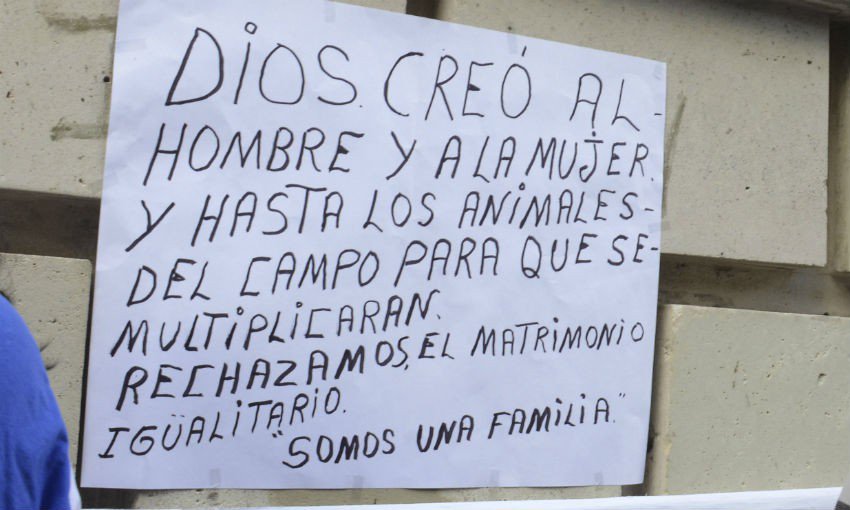 DIOS. CREÓ AL-
HOMBRE Y A LA MUJER.
Y HASTA LOS ANIMALES-
DEL CAMPO PARA QUE SE-
MULTIPLICARAN.
RECHAZAMOS, EL MATRIMONIO
IGÜALITARIO.
"SOMOS UNA FAMILIA."